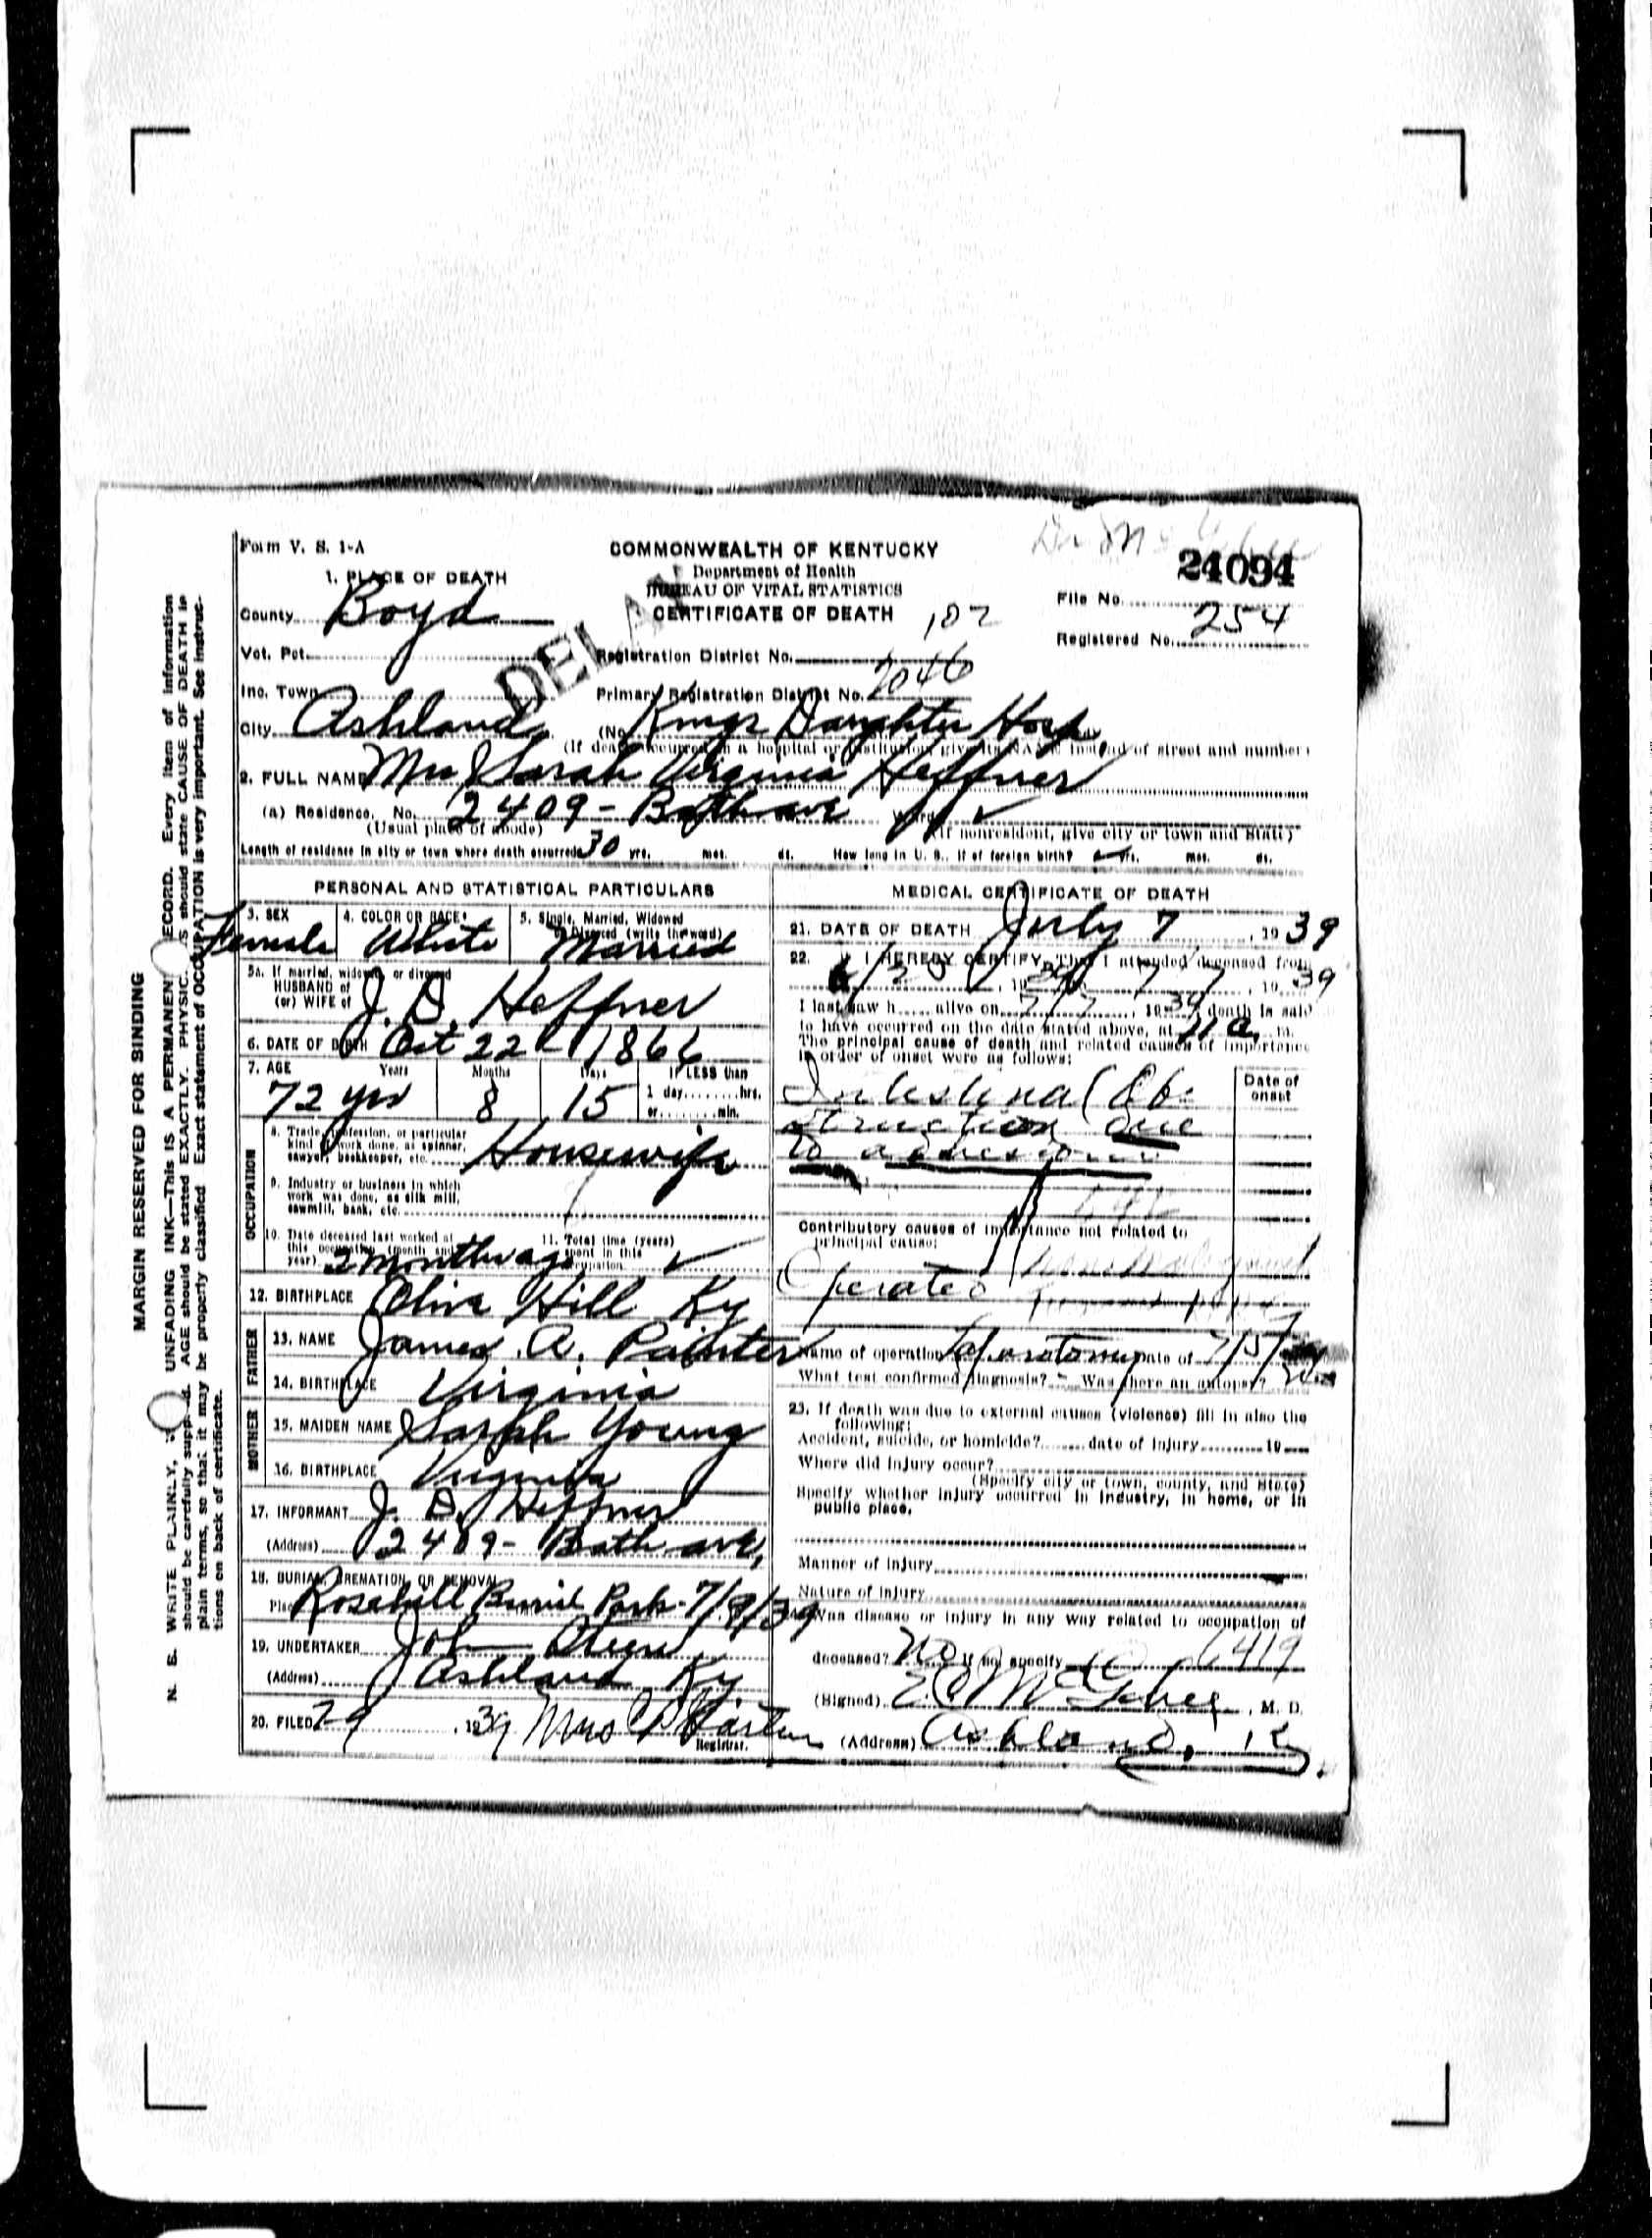 MARGIN RESERVED FOR BINDING
N. B. WRITE PLAINLY, UNFADING INK—This IS A PERMANENT RECORD. Every item of information
should be carefully supplied. AGE should be stated EXACTLY. PHYSIC S should state CAUSE OF DEATH in
plain terms, so that it may be properly classified. Exact statement of OCCUPATION is very important. See instruc-
tions on back of certificate.
Form V. S. 1-A
COMMONWEALTH OF KENTUCKY
Department of Health
BUREAU OF VITAL STATISTICS
CERTIFICATE OF DEATH
24094
1. PLACE OF DEATH
File No.
County Boyd
Registered No. 254
Vot. Pct.
Registration District No. 102
DELAY
Inc. Town
Primary Registration District No. 2046
City Ashland (No. Kings Daughter Hosp
(If death occurred in a hospital or institution give its NAME instead of street and number)
2. FULL NAME Mrs Sarah Virginia Heffner
(a) Residence. No. 2409 - Bath ave Ward
(Usual place of abode) (If nonresident, give city or town and State)
Length of residence in city or town where death occurred 30 yrs. mos. ds. How long in U. S., if of foreign birth? yrs. mos. ds.
PERSONAL AND STATISTICAL PARTICULARS
3. SEX Female
4. COLOR OR RACE White
5. Single, Married, Widowed or Divorced (write the word) Married
5a. If married, widowed, or divorced
HUSBAND of
(or) WIFE of J. D. Heffner
6. DATE OF BIRTH Oct 22 - 1866
7. AGE Years Months Days If LESS than
72 yrs 8 15 1 day hrs.
or min.
OCCUPATION
8. Trade, profession, or particular
kind of work done, as spinner,
sawyer, bookkeeper, etc. Housewife
9. Industry or business in which
work was done, as silk mill,
sawmill, bank, etc.
10. Date deceased last worked at
this occupation (month and
year) 2 months ago
11. Total time (years)
spent in this
occupation
12. BIRTHPLACE Olive Hill Ky
FATHER
13. NAME James A. Painter
14. BIRTHPLACE Virginia
MOTHER
15. MAIDEN NAME Sarah Young
16. BIRTHPLACE Virginia
17. INFORMANT J. D. Heffner
(Address) 2409 - Bath ave,
18. BURIAL, CREMATION, OR REMOVAL
Place Rosehill Burial Park - 7/9/39
19. UNDERTAKER John Steen
(Address) Ashland Ky
20. FILED 7-9, 1939 Mrs
Registrar.
MEDICAL CERTIFICATE OF DEATH
21. DATE OF DEATH July 7, 1939
22. I HEREBY CERTIFY, That I attended deceased from
7 7, 1939
I last saw h alive on 7/7, 1939 death is said
to have occurred on the date stated above, at 11 a. m.
The principal cause of death and related causes of importance
in order of onset were as follows:
Date of
onset
Intestinal Ob-
struction due
to adhesions
Contributory causes of importance not related to
principal cause:
Operated
Name of operation Laparotomy Date of 7/5/
What test confirmed diagnosis? - Was there an autopsy?
23. If death was due to external causes (violence) fill in also the
following:
Accident, suicide, or homicide? date of injury 19
Where did injury occur?
(Specify city or town, county, and State)
Specify whether injury occurred in industry, in home, or in
public place.
Manner of injury
Nature of injury
Was disease or injury in any way related to occupation of
deceased? No If so, specify 6419
(Signed) E C McGehee, M. D.
(Address) Ashland, Ky.